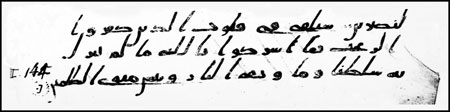 لنصرين سنلقى فى قلوب الذين كفروا
الرعب بما اشركوا بالله ما لم ينزل
به سلطنا وماويهم النار وبئس مثوى الظلمين
144